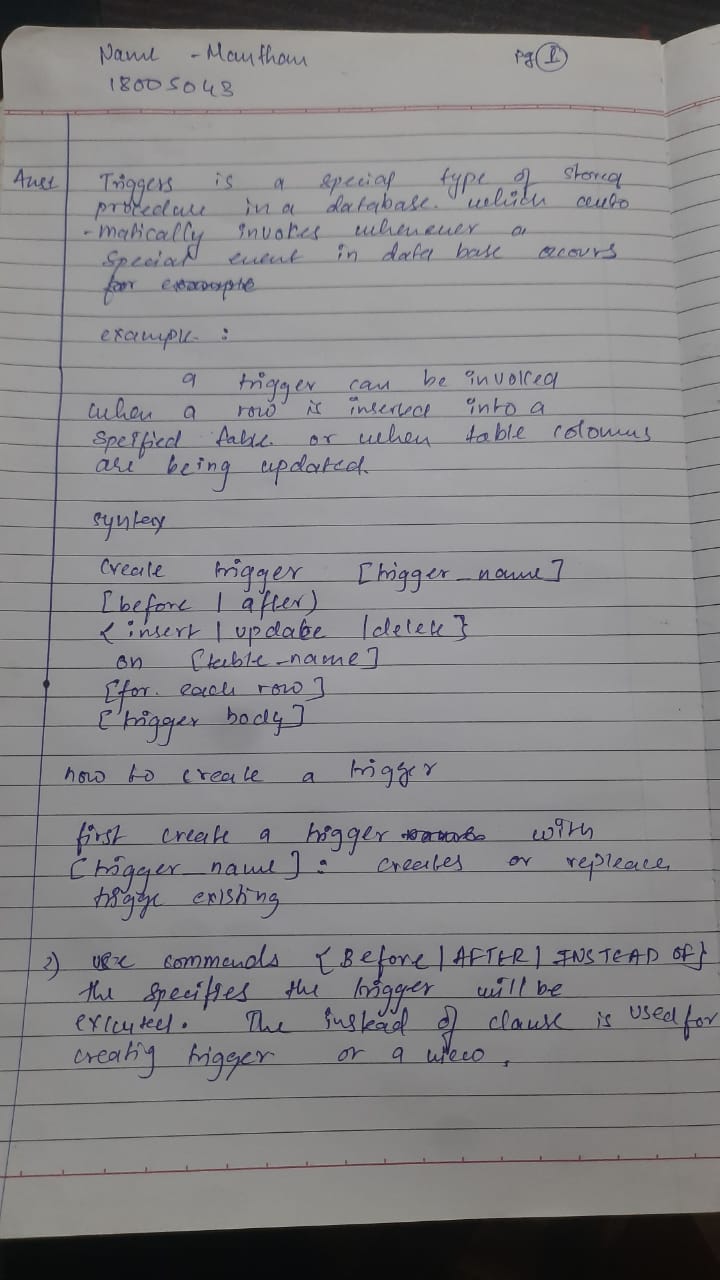 Name - Manthan
Pg 1
18005043
Ans1 Triggers is a special type of stored
procedure in a database. which auto
-matically invokes whenever a
special event in data base occurs
for example
example :
a trigger can be invoked
when a row is inserted into a
Speified table or when table coloumns
are being updated.
syntax
Create trigger [trigger_name]
[before | after)
{insert | update | delete}
on [table_name]
[for. each row]
[trigger body]
how to create a trigger
first create a trigger with
[trigger_name] : creates or repleace
trigge existing
2) use commands {Before | AFTER | INSTEAD OF}
the specifies the trigger will be
executed. The instead of clause is used for
creatig trigger or a